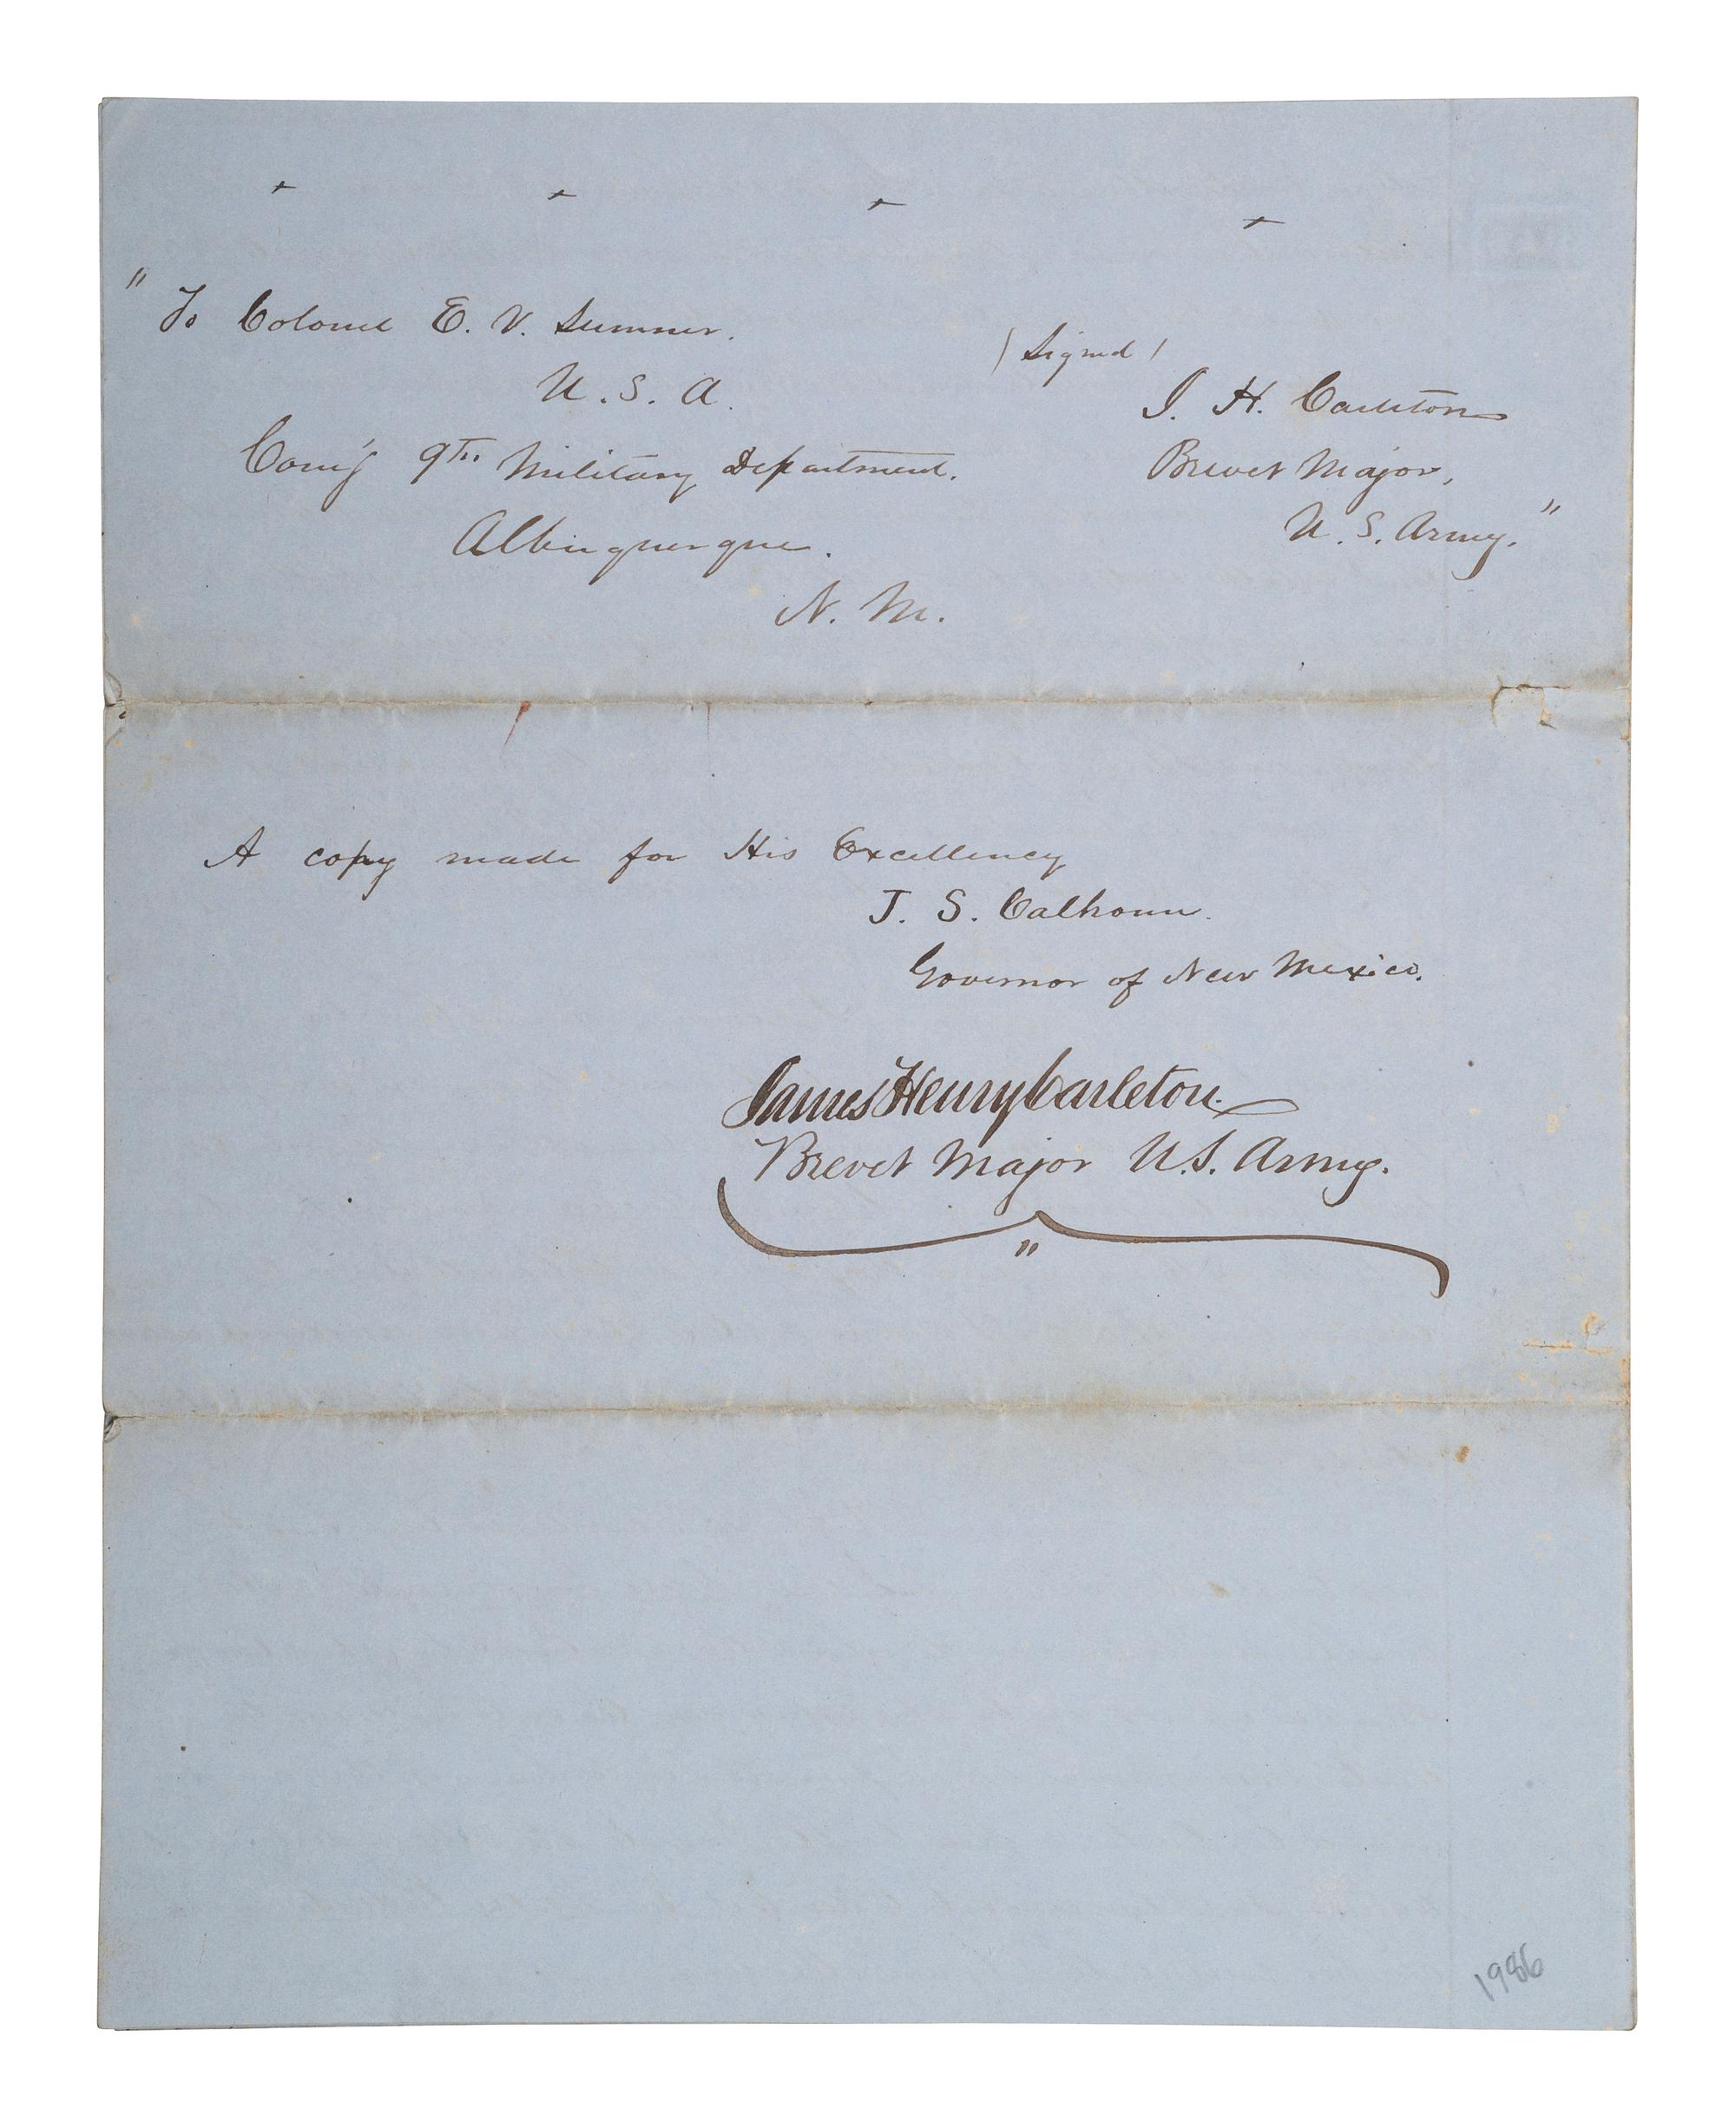 " To Colonel E. V. Sumner.
U. S. A.
Com'g 9th Military Department.
Albuquerque.
N. M.
(Signed)
J. H. Carleton
Brevet Major,
U. S. Army."
A copy made for His Excellency
J. S. Calhoun.
Governor of New Mexico.
James Henry Carleton.
Brevet Major U.S. Army.
"
1986